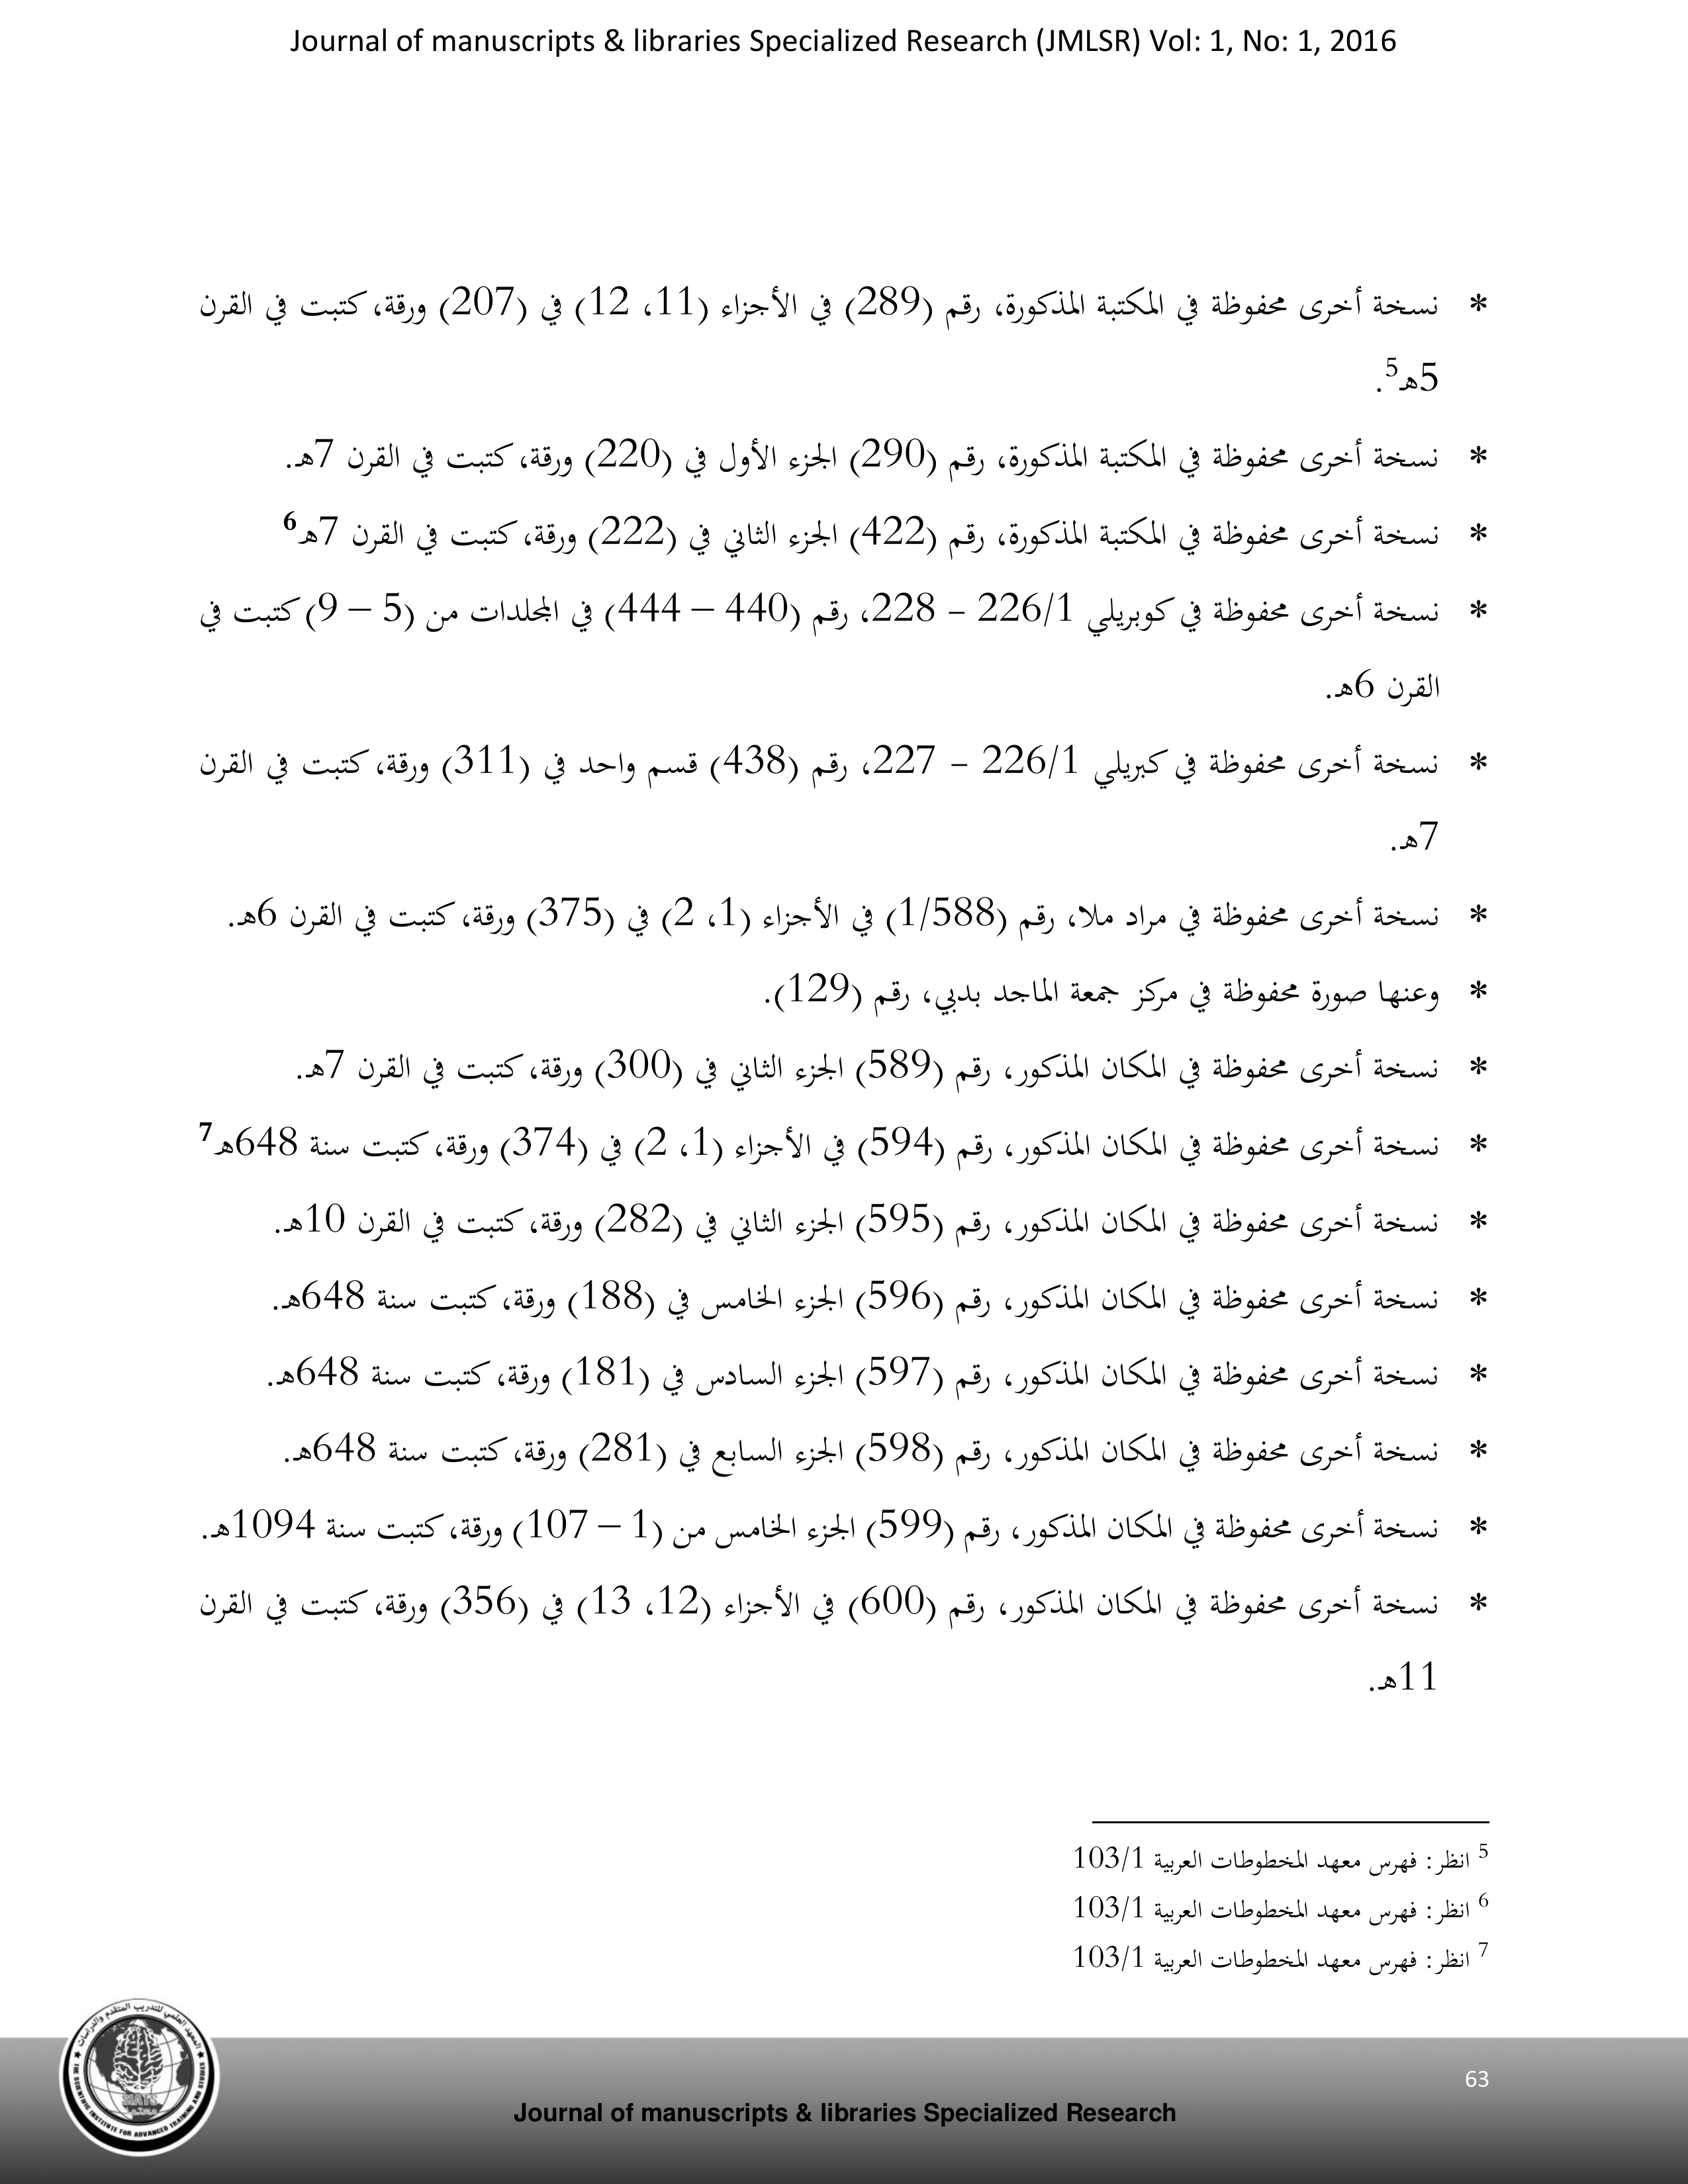 Journal of manuscripts & libraries Specialized Research (JMLSR) Vol: 1, No: 1, 2016
* نسخة أخرى محفوظة في المكتبة المذكورة، رقم (289) في الأجزاء (11، 12) في (207) ورقة، كتبت في القرن
5هـ5.
* نسخة أخرى محفوظة في المكتبة المذكورة، رقم (290) الجزء الأول في (220) ورقة، كتبت في القرن 7هـ.
* نسخة أخرى محفوظة في المكتبة المذكورة، رقم (422) الجزء الثاني في (222) ورقة، كتبت في القرن 7هـ6
* نسخة أخرى محفوظة في كوبريلي 226/1 – 228، رقم (440 – 444) في المجلدات من (5 – 9) كتبت في
القرن 6هـ.
* نسخة أخرى محفوظة في كبريلي 226/1 – 227، رقم (438) قسم واحد في (311) ورقة، كتبت في القرن
7هـ.
* نسخة أخرى محفوظة في مراد ملا، رقم (1/588) في الأجزاء (1، 2) في (375) ورقة، كتبت في القرن 6هـ.
* وعنها صورة محفوظة في مركز جمعة الماجد بدبي، رقم (129).
* نسخة أخرى محفوظة في المكان المذكور، رقم (589) الجزء الثاني في (300) ورقة، كتبت في القرن 7هـ.
* نسخة أخرى محفوظة في المكان المذكور، رقم (594) في الأجزاء (1، 2) في (374) ورقة، كتبت سنة 648هـ7
* نسخة أخرى محفوظة في المكان المذكور، رقم (595) الجزء الثاني في (282) ورقة، كتبت في القرن 10هـ.
* نسخة أخرى محفوظة في المكان المذكور، رقم (596) الجزء الخامس في (188) ورقة، كتبت سنة 648هـ.
* نسخة أخرى محفوظة في المكان المذكور، رقم (597) الجزء السادس في (181) ورقة، كتبت سنة 648هـ.
* نسخة أخرى محفوظة في المكان المذكور، رقم (598) الجزء السابع في (281) ورقة، كتبت سنة 648هـ.
* نسخة أخرى محفوظة في المكان المذكور، رقم (599) الجزء الخامس من (1 – 107) ورقة، كتبت سنة 1094هـ.
* نسخة أخرى محفوظة في المكان المذكور، رقم (600) في الأجزاء (12، 13) في (356) ورقة، كتبت في القرن
11هـ.
5 انظر: فهرس معهد المخطوطات العربية 103/1
6 انظر: فهرس معهد المخطوطات العربية 103/1
7 انظر: فهرس معهد المخطوطات العربية 103/1
المعهد العلمي للتدريب المتقدم والدراسات
SIATS
THE SCIENTIFIC INSTITUTE FOR ADVANCED TRAINING AND STUDIES
63
Journal of manuscripts & libraries Specialized Research